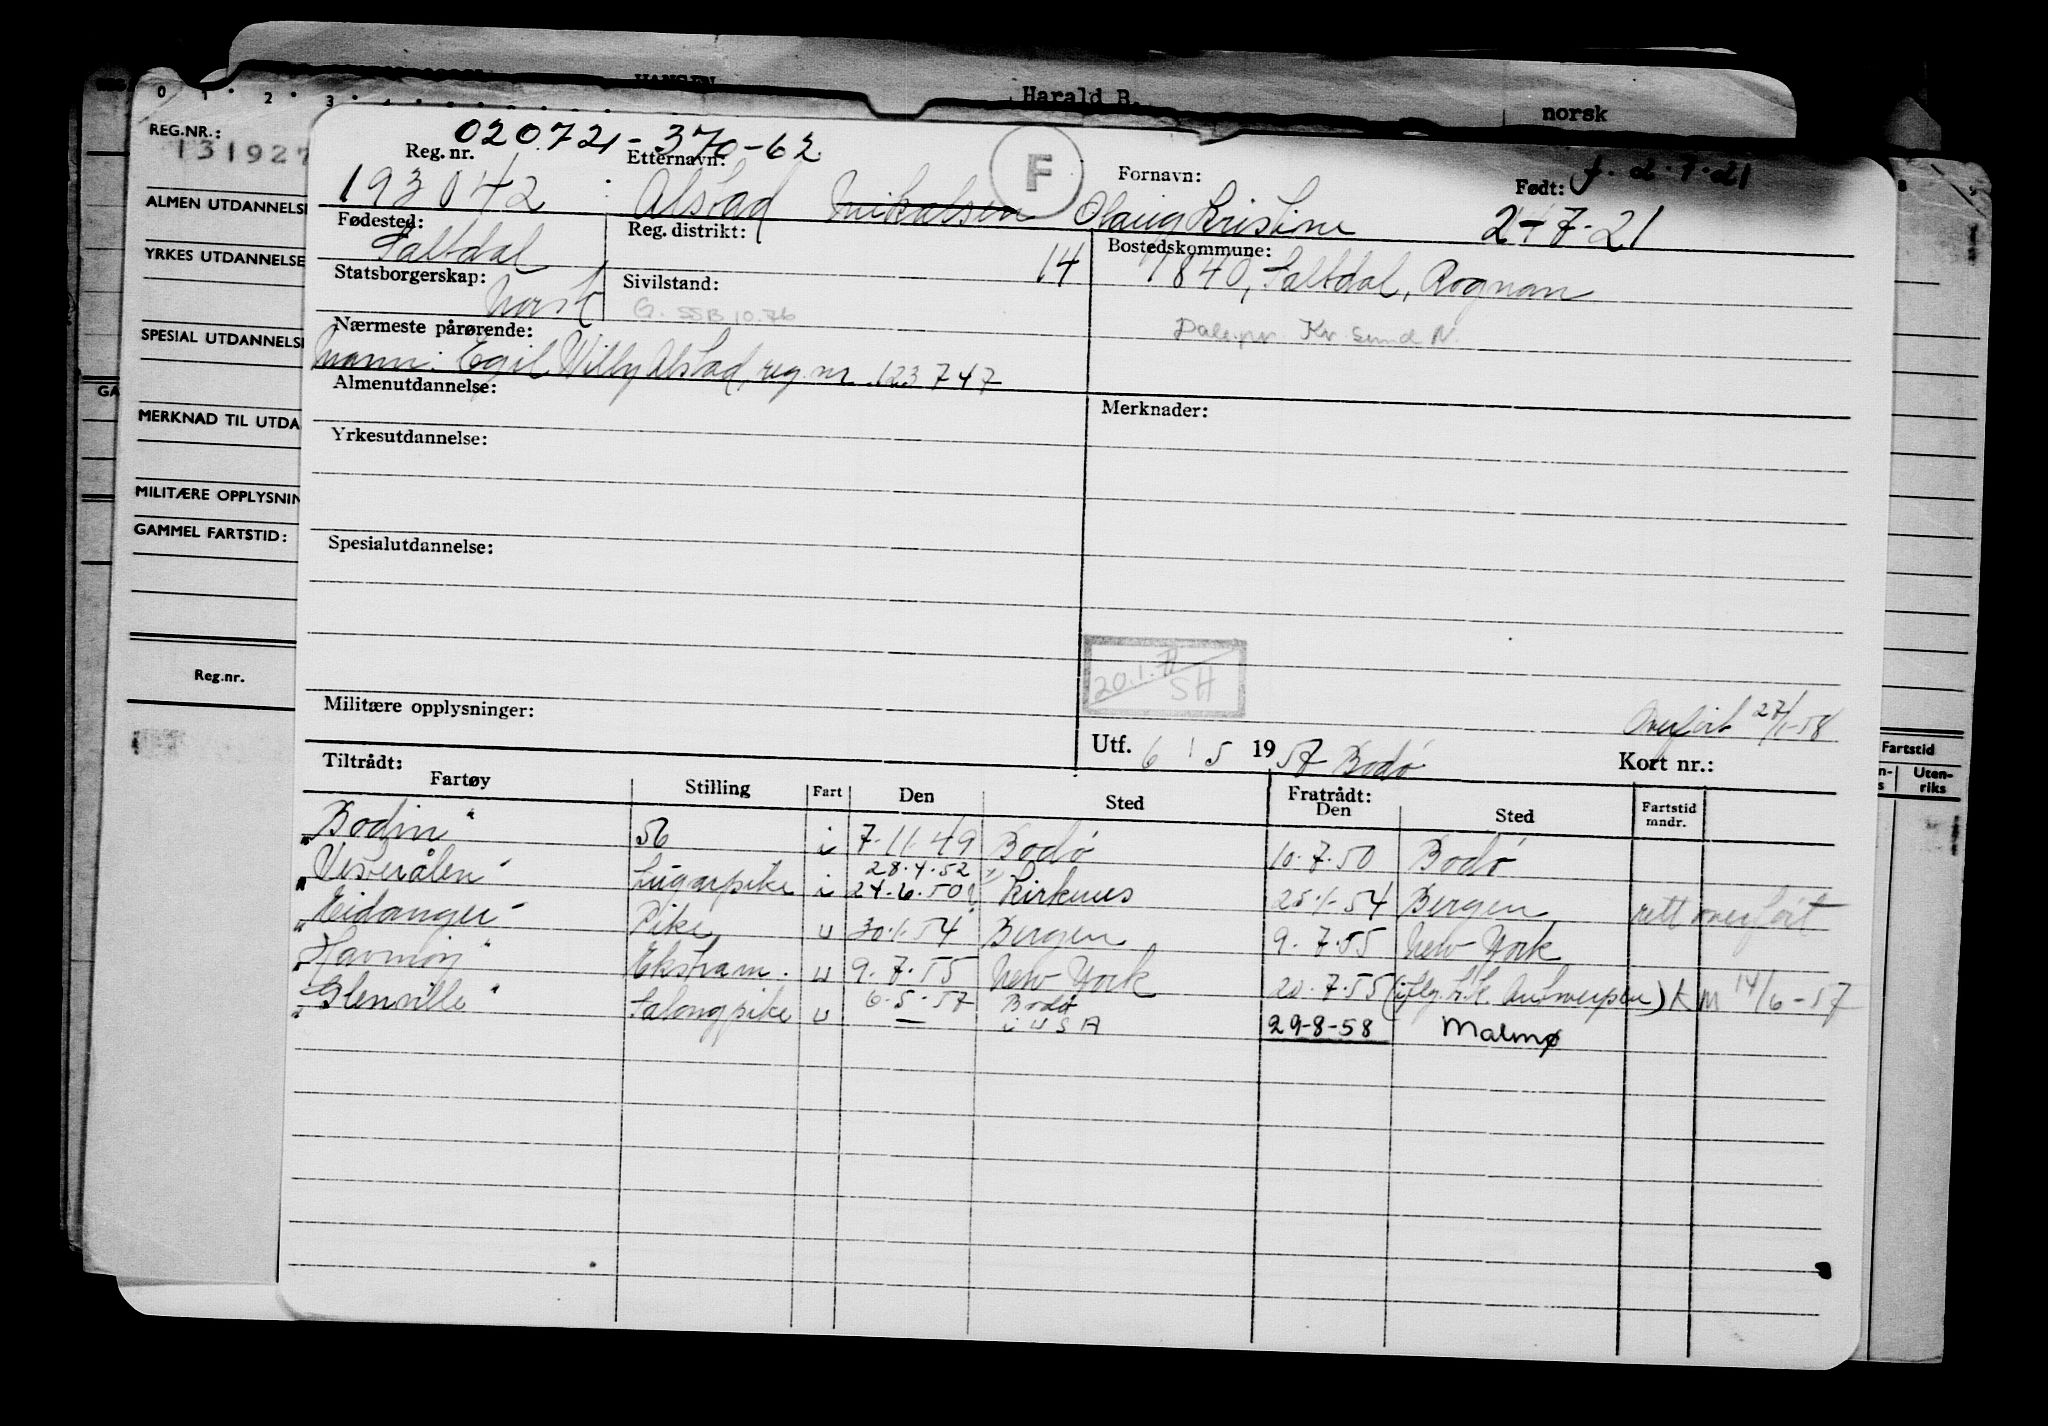 HANSEN Harald B. norsk
0 1 2 3
REG.NR.:
131927
ALMEN UTDANNELSE
YRKES UTDANNELSE
SPESIAL UTDANNELSE
MERKNAD TIL UTDA
MILITÆRE OPPLYSNIN
GAMMEL FARTSTID:
Reg.nr.
GA
Fartstid
Uten-
riks
020721-370-62
F
f. 2.7.21
Reg. nr. Etternavn: Fornavn: Født:
193042 Alstad Mikalsen Olaug Kristine 2-7-21
Fødested: Reg. distrikt: Bostedskommune:
Saltdal 14 1840, Saltdal, Rognan
Statsborgerskap: Sivilstand:
norsk G. SSB 10.76
Nærmeste pårørende: Kr. sund N.
Mann: Egil Willy Alstad, reg. nr. 123747
Almenutdannelse: Merknader:
Yrkesutdannelse:
Spesialutdannelse:
20.1.71
SH
Militære opplysninger: Overført 27/1-58
Utf. 6 / 5 1957 Bodø Kort nr.:
Tiltrådt: Fratrådt:
Fartøy Stilling Fart Den Sted Den Sted Fartstid mndr.
"Bodin" i 7.11.49 Bodø 10.7.50 Bodø
28.4.52
"Vesterålen" Lugarpike i 24.6.50 Kirkenes 25.1.54 Bergen rett overført
"Eidanger" Pike u 30.1.54 Bergen 9.7.55 New York
"Havmøy" Ekstram. u 9.7.55 New York 20.7.55 (iflg. Antwerpen) KM 14/6-57
"Glenville" Salongpike u 6.5.57 Bodø
— i USA 29-8-58 Malmø